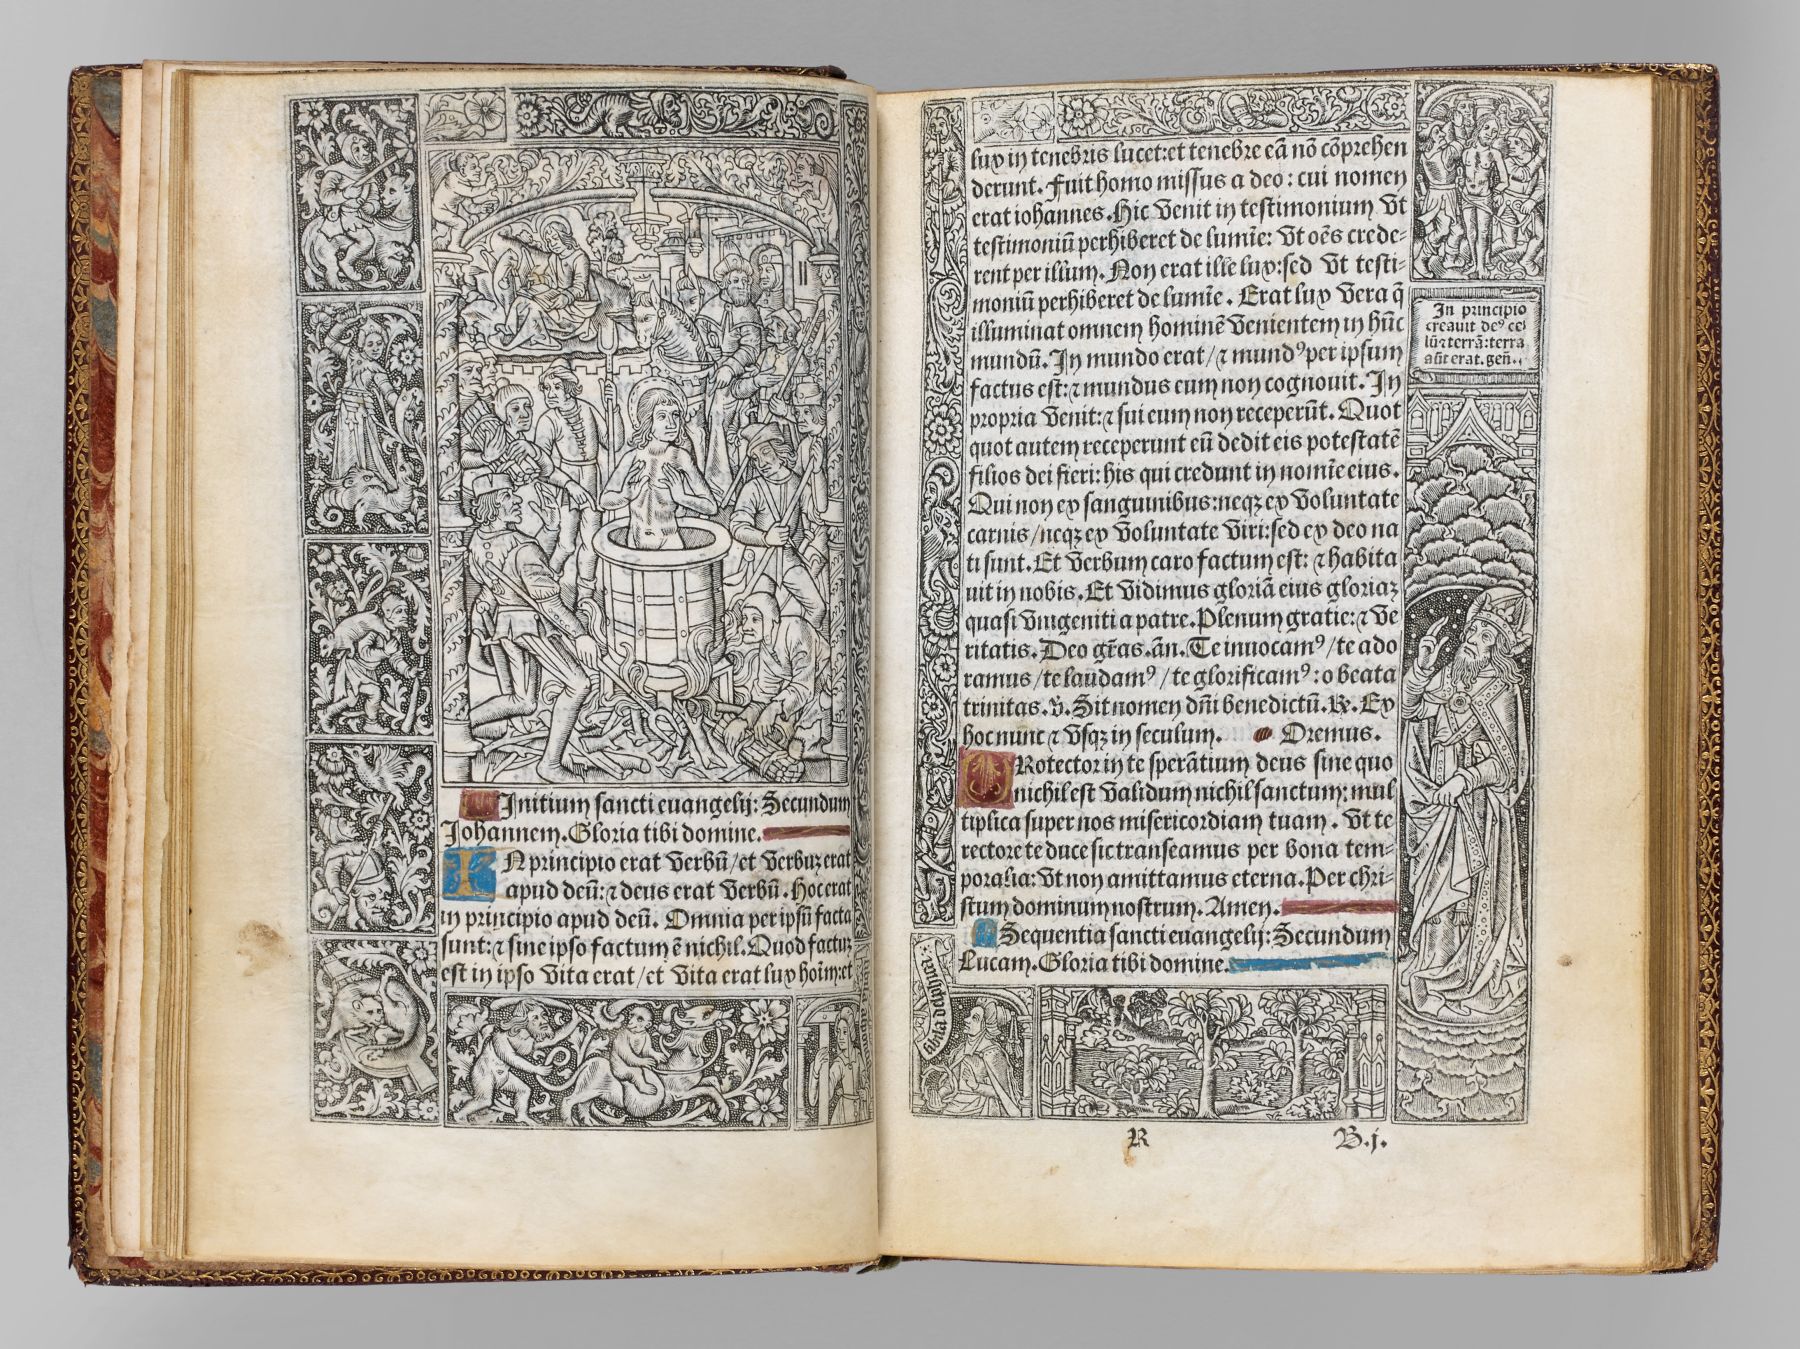 Initium sancti euangelij: Secundum
Johannem. Gloria tibi domine.
IN principio erat verbū/et verbuꝫ erat
apud deū: ⁊ deus erat verbū. Hoc erat
in principio apud deū. Omnia per ipsū facta
sunt: ⁊ sine ipso factum ē nichil. Quod factuꝫ
est in ipso vita erat/et vita erat lux hoīm: et
lux in tenebris lucet: et tenebre eā nō cōprehen
derunt. Fuit homo missus a deo: cui nomen
erat iohannes. Hic venit in testimonium vt
testimoniū perhiberet de lumīe: vt oēs crede-
rent per illum. Non erat ille lux: sed vt testi-
moniū perhiberet de lumīe. Erat lux vera q̄
illuminat omnem hominē venientem in hūc
mundū. In mundo erat/⁊ mundꝰ per ipsum
factus est: ⁊ mundus eum non cognouit. In
propria venit: ⁊ sui eum non receperūt. Quot
quot autem receperunt eū dedit eis potestatē
filios dei fieri: his qui credunt in nomīe eius.
Qui non ex sanguinibus: neqꝫ ex voluntate
carnis/neqꝫ ex voluntate viri: sed ex deo na
ti sunt. Et verbum caro factum est: ⁊ habita
uit in nobis. Et vidimus gloriā eius gloriaꝫ
quasi vnigeniti a patre. Plenum gratie: ⁊ ve
ritatis. Deo gr̄as. an̄. Te inuocamꝰ/te ado
ramus/te laudamꝰ/te glorificamꝰ: o beata
trinitas. v̄. Sit nomen dn̄i benedictū. R. Ex
hoc nunc ⁊ vsqꝫ in seculum. Oremus.
PRotector in te sperātium deus sine quo
nichil est validum nichil sanctum: mul
tiplica super nos misericordiam tuam. Vt te
rectore te duce sic transeamus per bona tem-
poralia: vt non amittamus eterna. Per chri-
stum dominum nostrum. Amen.
Sequentia sancti euangelij: Secundum
Lucam. Gloria tibi domine.
In principio
creauit deꝰ cel
lū⁊ terrā: terra
aūt erat. gen̄.
R B.j.